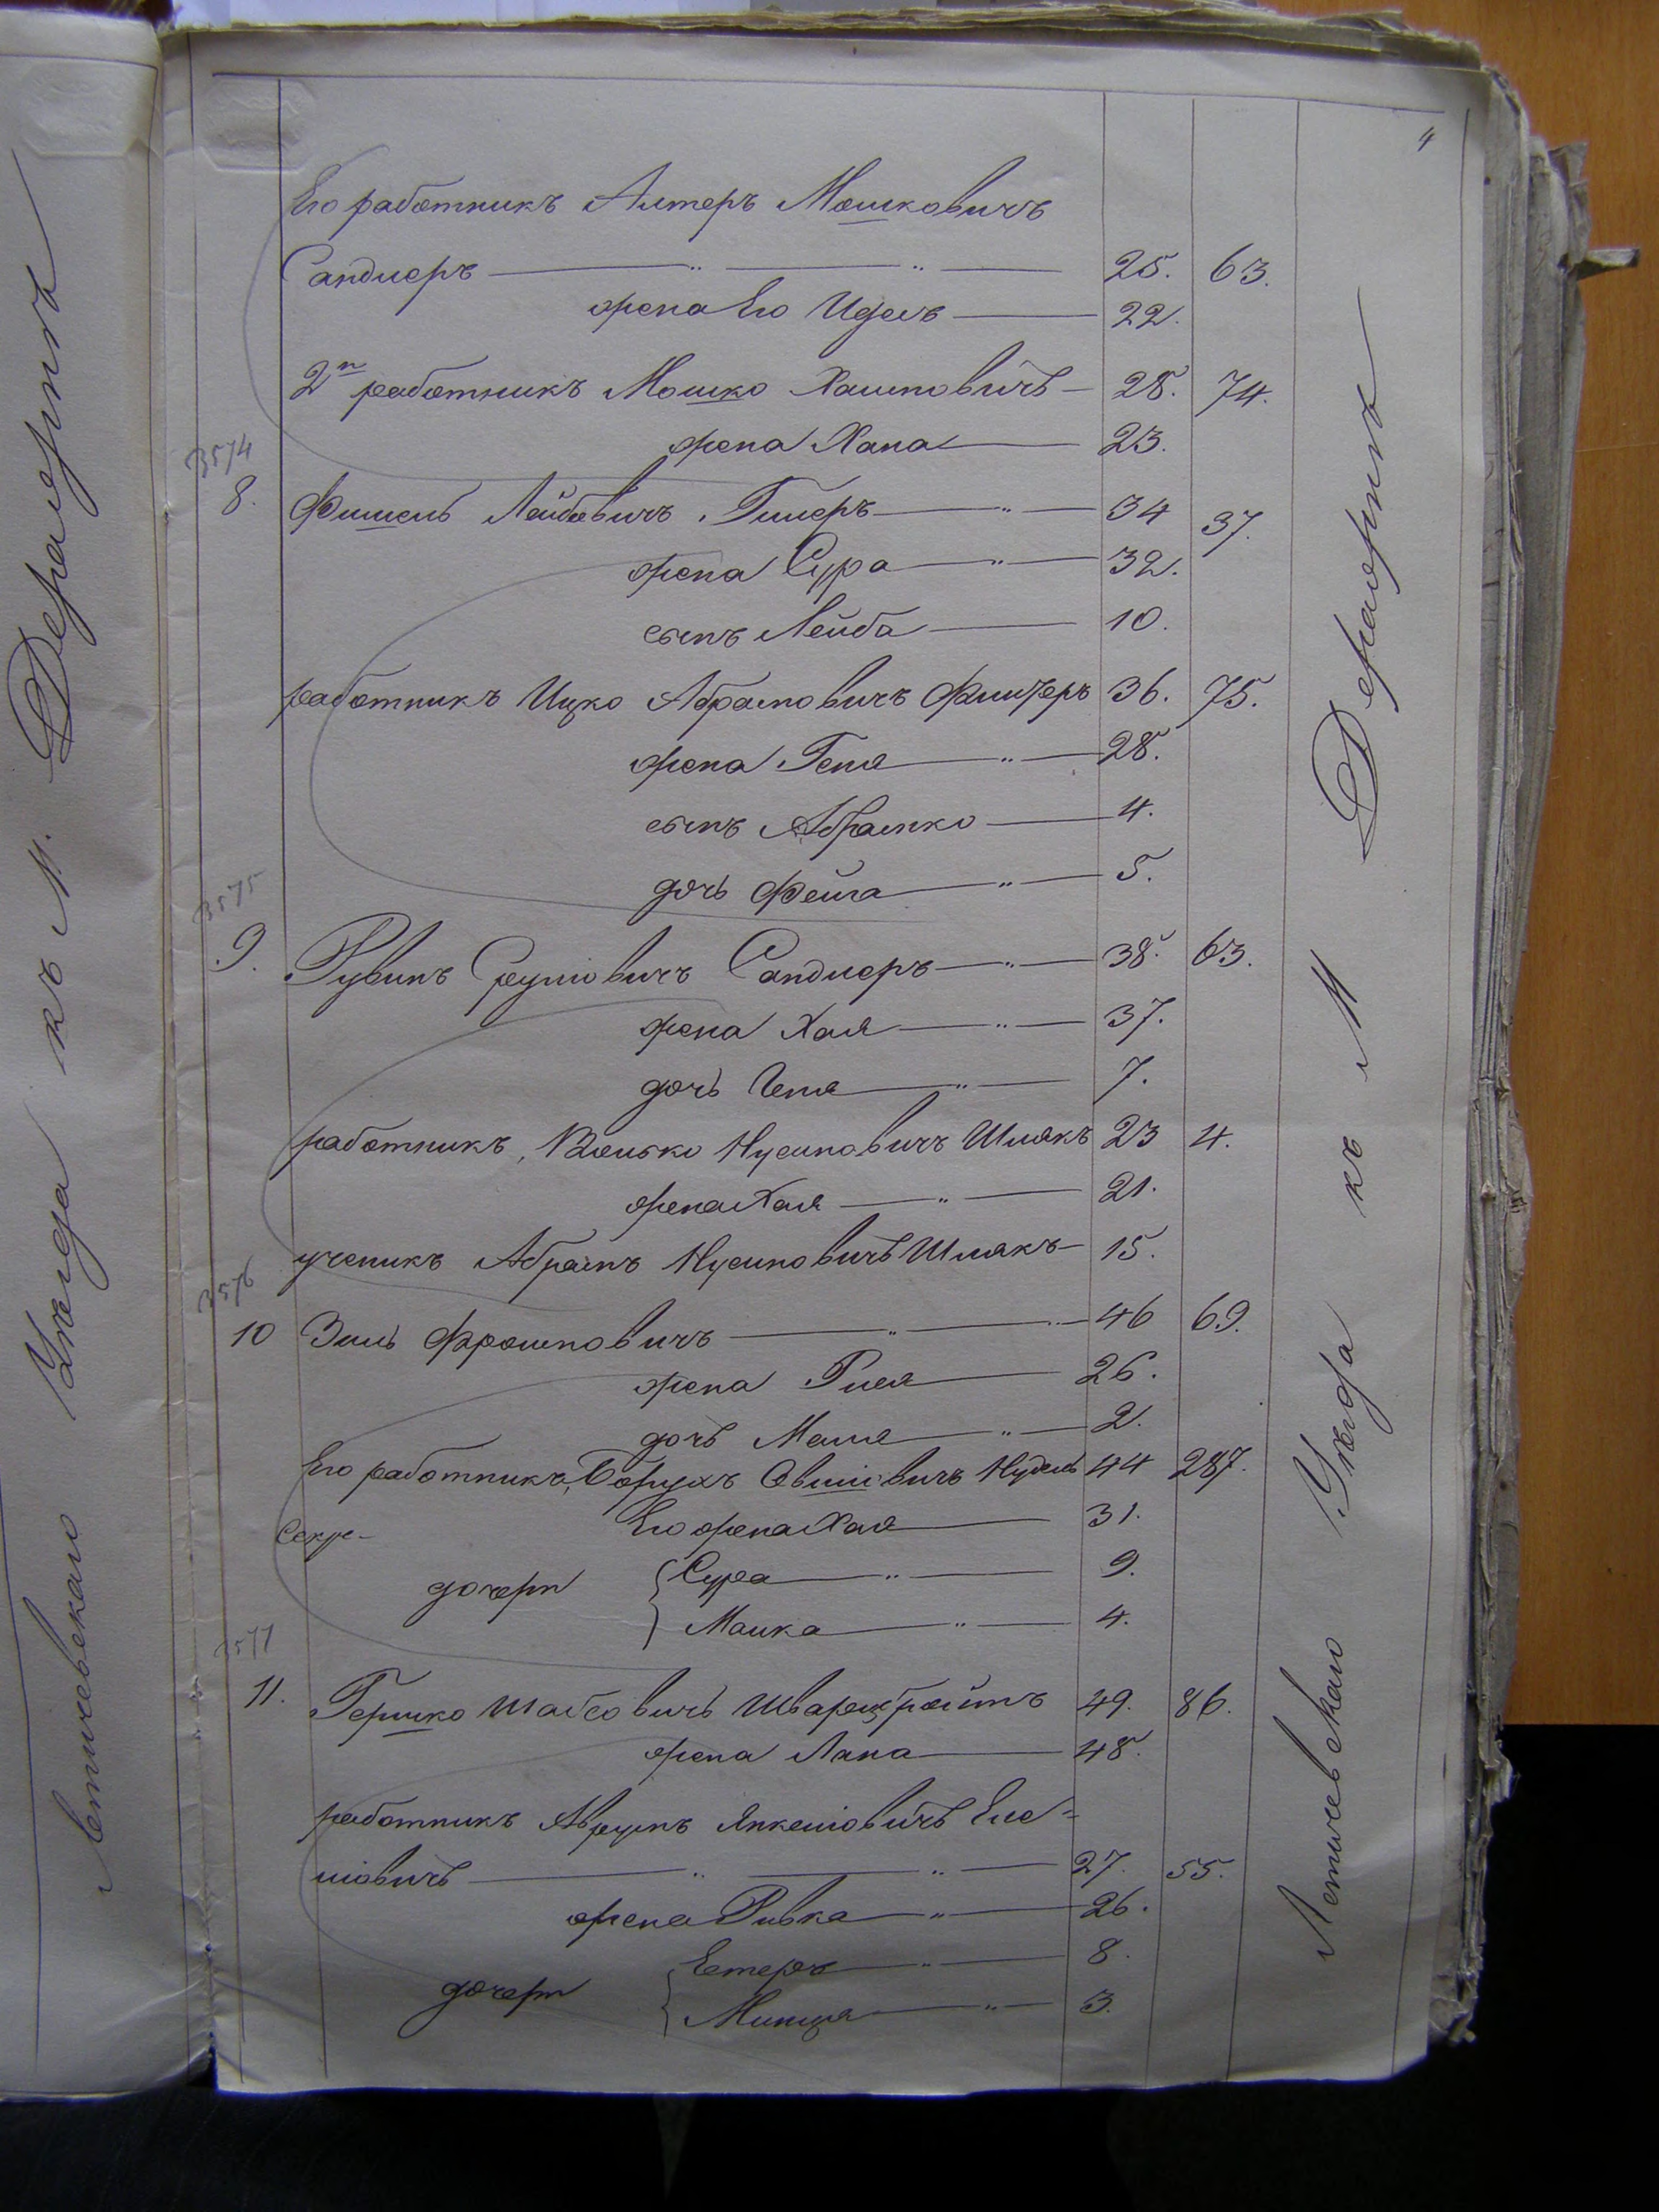 4
Его работникъ Алтеръ Мошковичъ
Сандлеръ — " — " — 25. 63.
жена Его Идесь — 22.
2й работникъ Мошко Хаимовичъ — 28. 74.
жена Хана — 23.
3574
8. Фишель Лейбовичъ Гимеръ — " — 34 37.
жена Сура — " — 32.
сынъ Лейба — 10.
работникъ Ицко Абрамовичъ 36. 75.
жена Геня — " — 28.
сынъ Абрамко — 4.
дочь Фейга — " — 5.
3575
9. Рувинъ Сруловичъ Сандлеръ — " — 38. 63.
жена Хая — " — 37.
дочь Геня — " — 7.
работникъ, Волько Нусимовичъ Шмакъ 23 4.
жена Хая — " — 21.
ученикъ Абрамъ Нусимовичъ Шмакъ — 15.
3576
10 Зиль Фроимовичъ — " — 46 69.
жена — 26.
дочь — " — 2.
Его работникъ, Борухъ Овшіовичъ Нудель 44 287.
Секре- Его жена Хая — 31.
дочери { Сура — " — 9.
Малка — " — 4.
3577
11. Гершко Шабсовичъ Шварцбройтъ 49. 86.
жена Лана — 48.
работникъ Аврумъ Янкеліовичъ Еле-
ліовичъ — " — " — 27. 55.
жена Ривка — " — 26.
дочери { Естеръ — " — 8.
Минця — " — 3.
Летичевскаго Уѣзда къ М Деражнѣ
Летичевскаго Уѣзда къ М. Деражнѣ